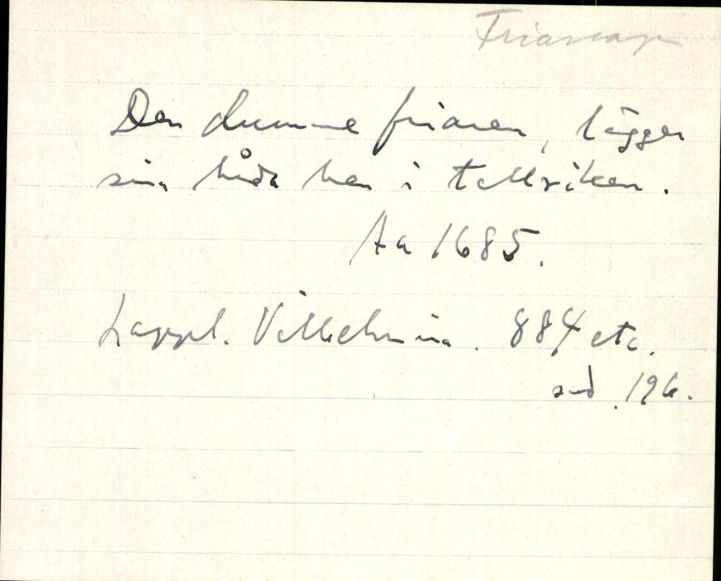 Friarsaga
Den dumme friaren, lägger
sina båda ben i tallriken.
Aa 1685.
Lappl. Vilhelmina. 884 etc.
sid. 196.